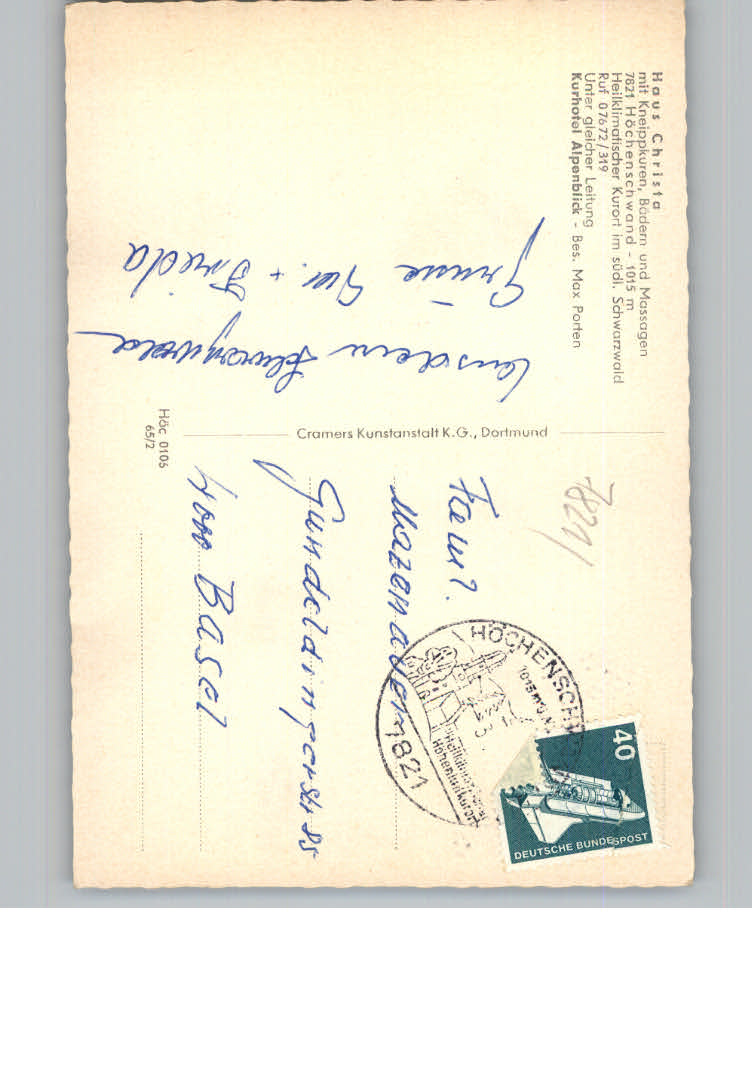 Haus Christa
mit Kneippkuren, Bädern und Massagen
7821 Höchenschwand - 1015 m
Heilklimatischer Kurort im südl. Schwarzwald
Ruf 07672/319
Unter gleicher Leitung
Kurhotel Alpenblick - Bes. Max Porten
Grüsse
+ Frieda
Schwarzwald
Höc 0106
65/2
Cramers Kunstanstalt K.G., Dortmund
7821
Fam.
Mazenauer
Gundeldingerstr 85
4000 Basel
HÖCHENSCHW
1015 m ü.
Heilklimatischer
Höhenluftkurort
7821
40
DEUTSCHE BUNDESPOST